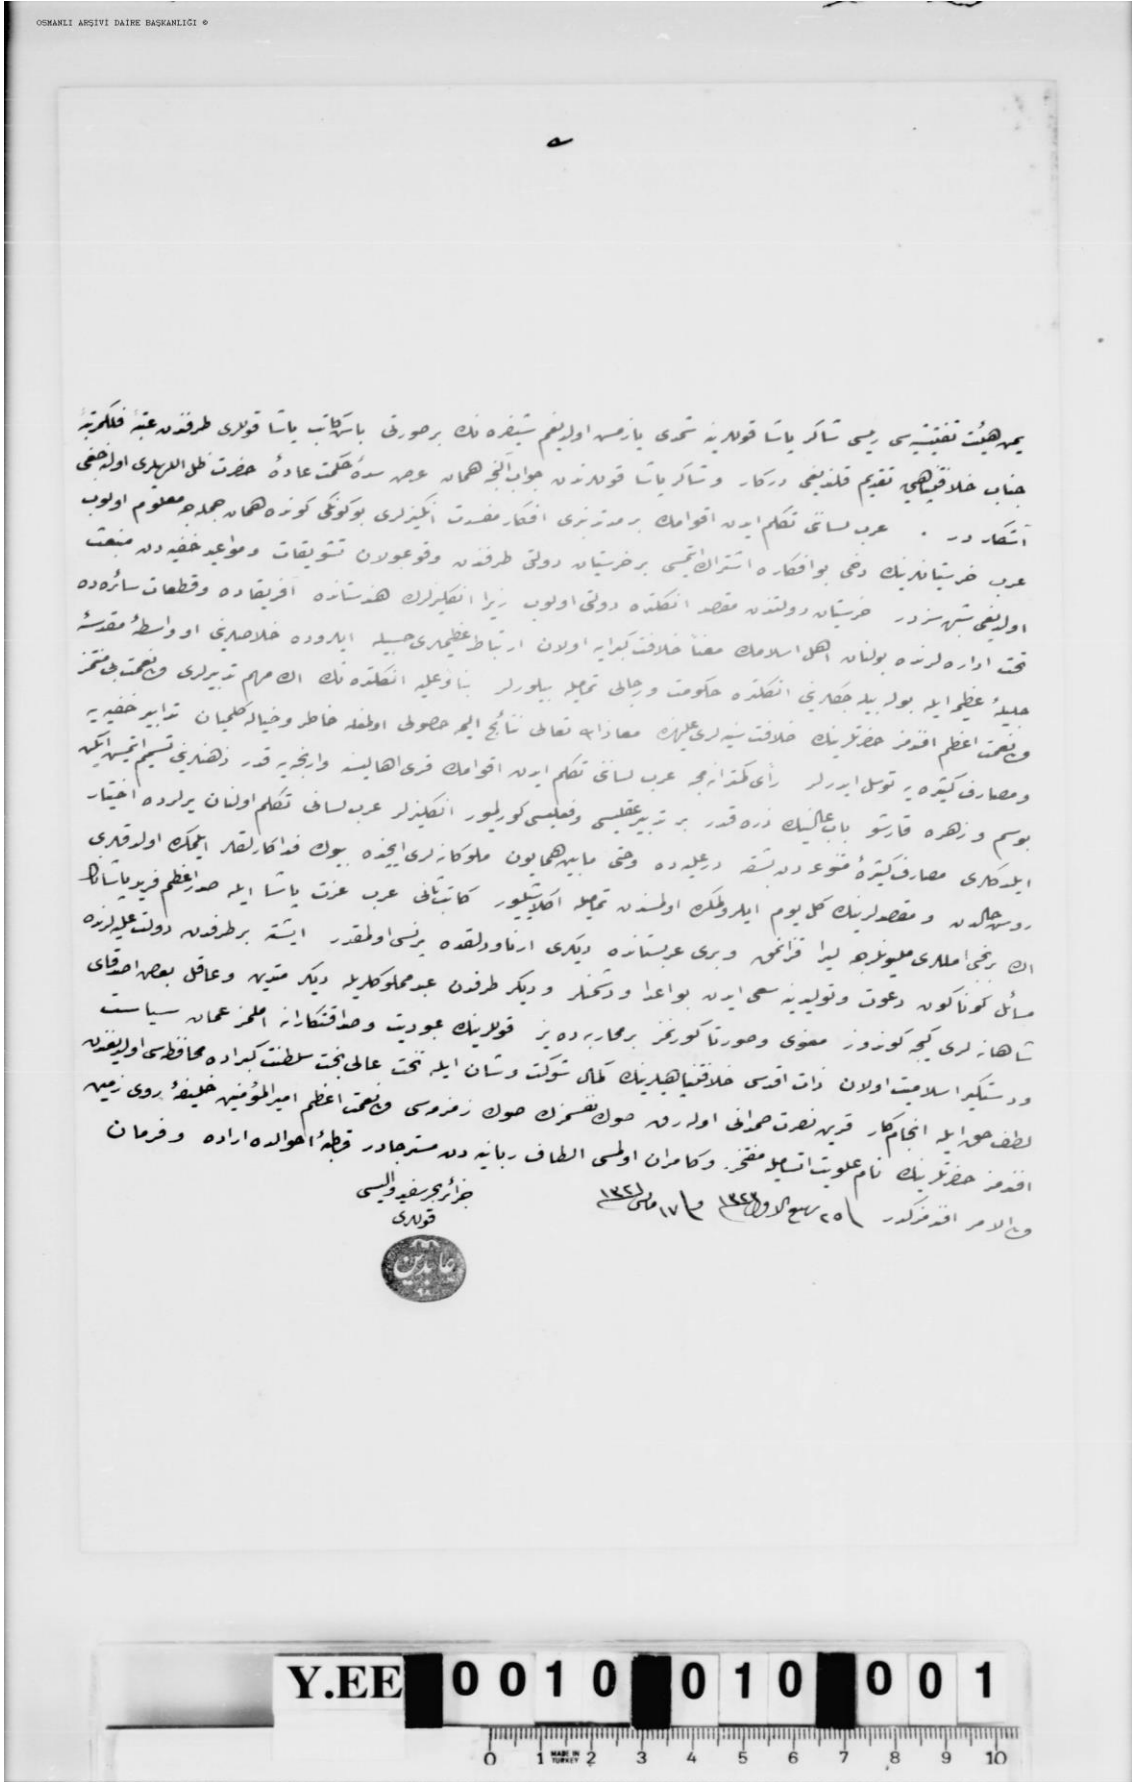 OSMANLI ARŞİVİ DAİRE BAŞKANLIĞI ©
يمن هيئت تفتيشيه سى رئيسى شاكر پاشا قوللرينه شمدى يازمش اولديغم شيفره نك بر صورتى باش كاتب پاشا قوللرى طرفندن عتبۀ فلكمرتبۀ
جناب خلافتپناهى يه تقديم قلنديغى دركار و شاكر پاشا قوللرندن جواب آلنجه همان عرض سدۀ حكمت عادۀ حضرت ظل اللهيلرى اوله جغى
آشكاردر . عرب لساننى تكلم ايدن اقوامك بر مدتدنبرى افكار مفسدت انگيزلرى بوكونكى كونده همان جمله جه معلوم اولوب
عرب خرستيانلرينك دخى بو افكاره اشتراك ايتمسى بر خرستيان دولتى طرفندن وقوعبولان تشويقات و مواعيد خفيه دن منبعث
اولديغى شبهه سزدر خرستيان دولتندن مقصد انكلتره دولتى اولوب زيرا انكليزلرك هندستانده آفريقاده و قطعات سائره ده
تحت اداره لرنده بولنان اهل اسلامك معناً خلافت كبرايه اولان ارتباط عظيملرى حسبيله ايلروده خلاصلرينى او واسطۀ مقدسۀ
جليلۀ عظيمه ايله بوله بيله جكلرينى انكلتره حكومت و رجالى تماميله بيلورلر بناءً عليه انكلتره نك اك مهم تدبيرلرى ولى نعمت بى منتمز
ولى نعمت اعظم افندمز حضرتلرينك خلافت سنيه لرى عليهنده معاذ الله تعالى نتائج اليمه حصولى اولمغله خاطر و خياله كلميان تدابير خفيه يه
و مصارف كثيره يه توسل ايدرلر رأى كمترانه مجه عرب لساننى تكلم ايدن اقوامك قرى اهاليسنه وارنجه يه قدر ذهنلرينى تسميم ايتمش ايكن
بو سم و زهره قارشو باب عالينك ذره قدر بر تدبير عقليسى و فعليسى كورلميور انكليزلر عرب لسانى تكلم اولنان يرلرده اختيار
ايلدكلرى مصارف كثيرۀ متنوعه دن بشقه در عليه ده و حتى مابين همايون ملوكانه لرى ايچنده بيوك فداكارلقلر ايلمك اولدقلرى
روش حالدن و مقصدلرينك كل يوم ايلرولمكده اولمسندن تماميله اكلاشيليور كاتب ثانى عرب عزت پاشا ايله صدر اعظم فريد پاشانك
اك برنجى امللرى مليونلرجه ليرا قزانمق و برى عربستانده ديكرى ارناودلقده پرنس اولمقدر ايشته بر طرفدن دولت عليه لرنده
مسائل كوناكون دعوت و توليدينه سعى ايدن بو اعدا و دشمنلر و ديكر طرفدن عبد مملوكلريله ديكر متدين و عاقل بعض اصدقاى
شاهانه لرى كيجه كوندوز معنوى و صورتا كورنمز بر محاربه ده يز قوللرينك عبوديت و صداقتكارانه املمز عمان سياست
و دستكير اسلاميت اولان ذات اقدس خلافتپناهيلرينك كمال شوكت و شان ايله تخت عالى بخت سلطنت كبراده محافظه سى اولديغندن
لطف حق ايله انجام كار قرين نصرت صمدانى اوله رق صوك نفسمزك صوك زمزمه سى ولى نعمت اعظم امير المؤمنين خليفۀ روى زمين
افندمز حضرتلرينك نام علويت اتساميله مفتخر و كامران اولمسى الطاف ربانيه دن مسترجادر قاطبۀ احوالده اراده و فرمان
ولى الامر افندمزكدر فى ٢٥ ربيع الاول ١٣٢٣ و فى ١٧ مايس ١٣٢١
جزائر بحر سفيد واليسى
قوللرى
عابدين
Y.EE 0010 010 001
0 1 2 3 4 5 6 7 8 9 10
MADE IN TURKEY